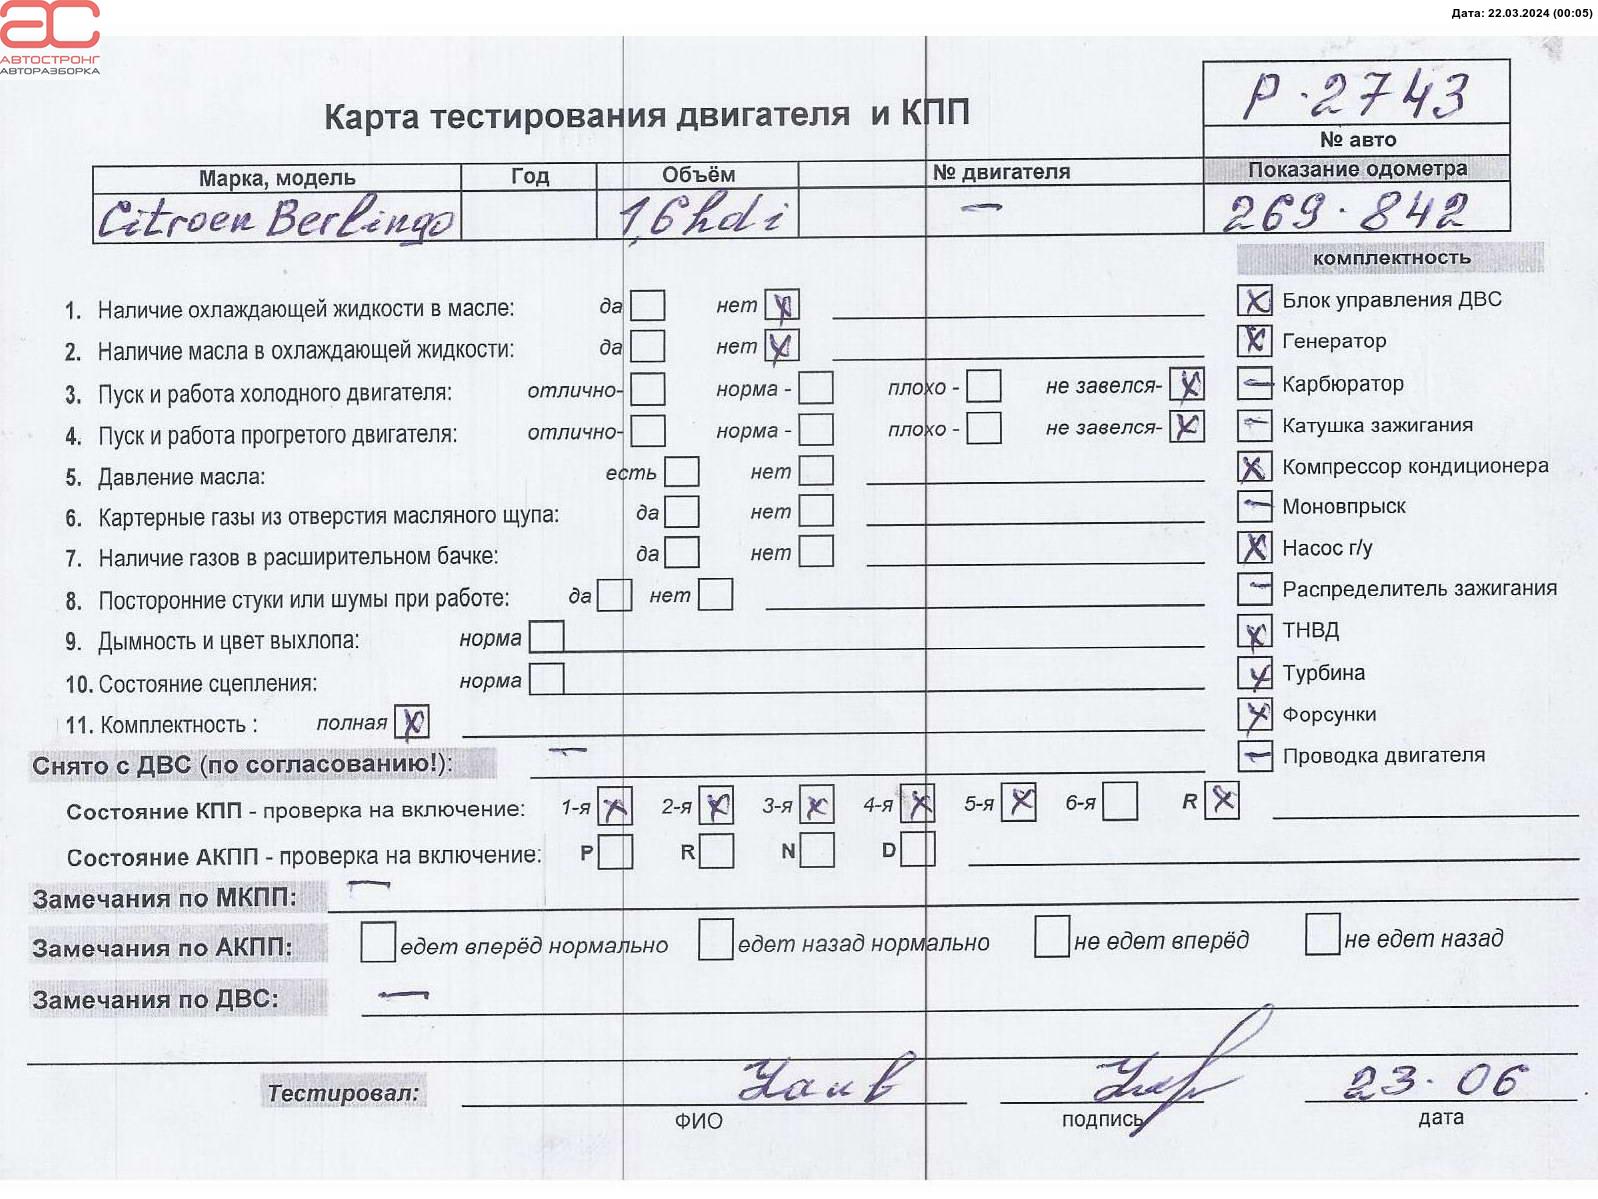 Дата: 22.03.2024 (00:05)
АС
АВТОСТРОНГ
АВТОРАЗБОРКА
Карта тестирования двигателя и КПП
Р-2743
№ авто
Марка, модель Год Объём № двигателя Показание одометра
Citroen Berlingo 1,6 hdi — 269.842
комплектность
1. Наличие охлаждающей жидкости в масле: да нет X
2. Наличие масла в охлаждающей жидкости: да нет X
3. Пуск и работа холодного двигателя: отлично- норма - плохо - не завелся- X
4. Пуск и работа прогретого двигателя: отлично- норма - плохо - не завелся- X
5. Давление масла: есть нет
6. Картерные газы из отверстия масляного щупа: да нет
7. Наличие газов в расширительном бачке: да нет
8. Посторонние стуки или шумы при работе: да нет
9. Дымность и цвет выхлопа: норма
10. Состояние сцепления: норма
11. Комплектность : полная X
X Блок управления ДВС
X Генератор
— Карбюратор
— Катушка зажигания
X Компрессор кондиционера
— Моновпрыск
X Насос г/у
— Распределитель зажигания
X ТНВД
X Турбина
X Форсунки
— Проводка двигателя
Снято с ДВС (по согласованию!): —
Состояние КПП - проверка на включение: 1-я X 2-я X 3-я X 4-я X 5-я X 6-я R X
Состояние АКПП - проверка на включение: P R N D
Замечания по МКПП: —
Замечания по АКПП: едет вперёд нормально едет назад нормально не едет вперёд не едет назад
Замечания по ДВС: —
Тестировал: 23.06
ФИО подпись дата